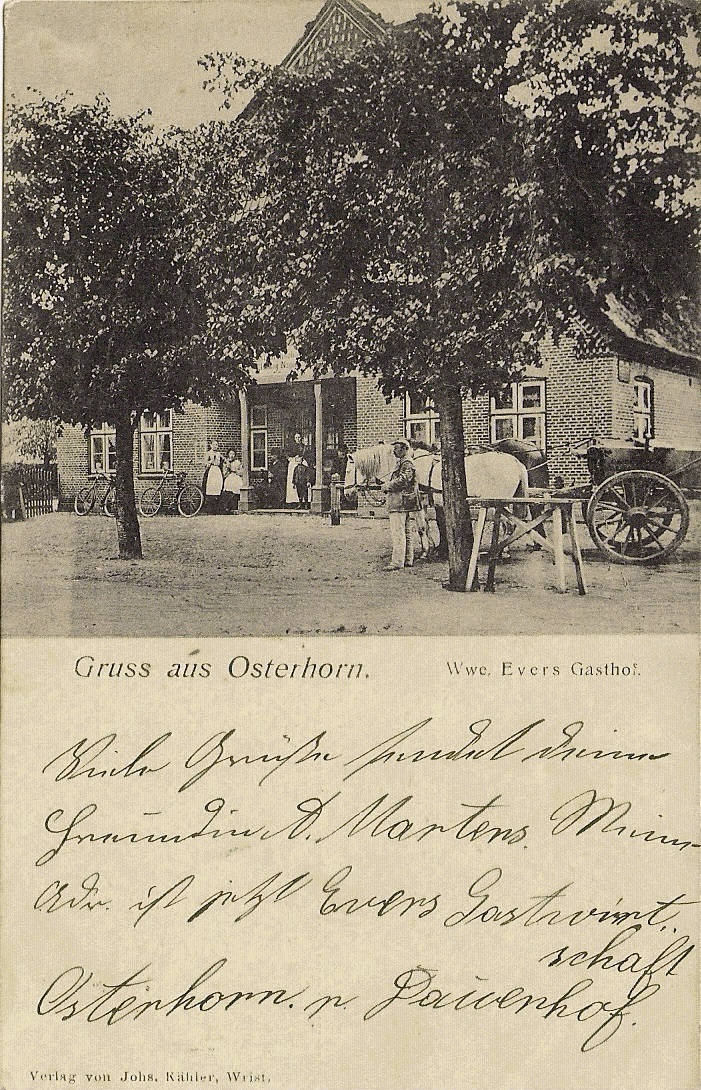 Gruss aus Osterhorn. Wwe. Evers Gasthof.
Viele Grüße sendet deine
Freundin A. Martens. Meine
Adr. ist jetzt Evers Gastwirt-
schaft
Osterhorn. n. Dauenhof.
Verlag von Johs. Kähler, Wrist.